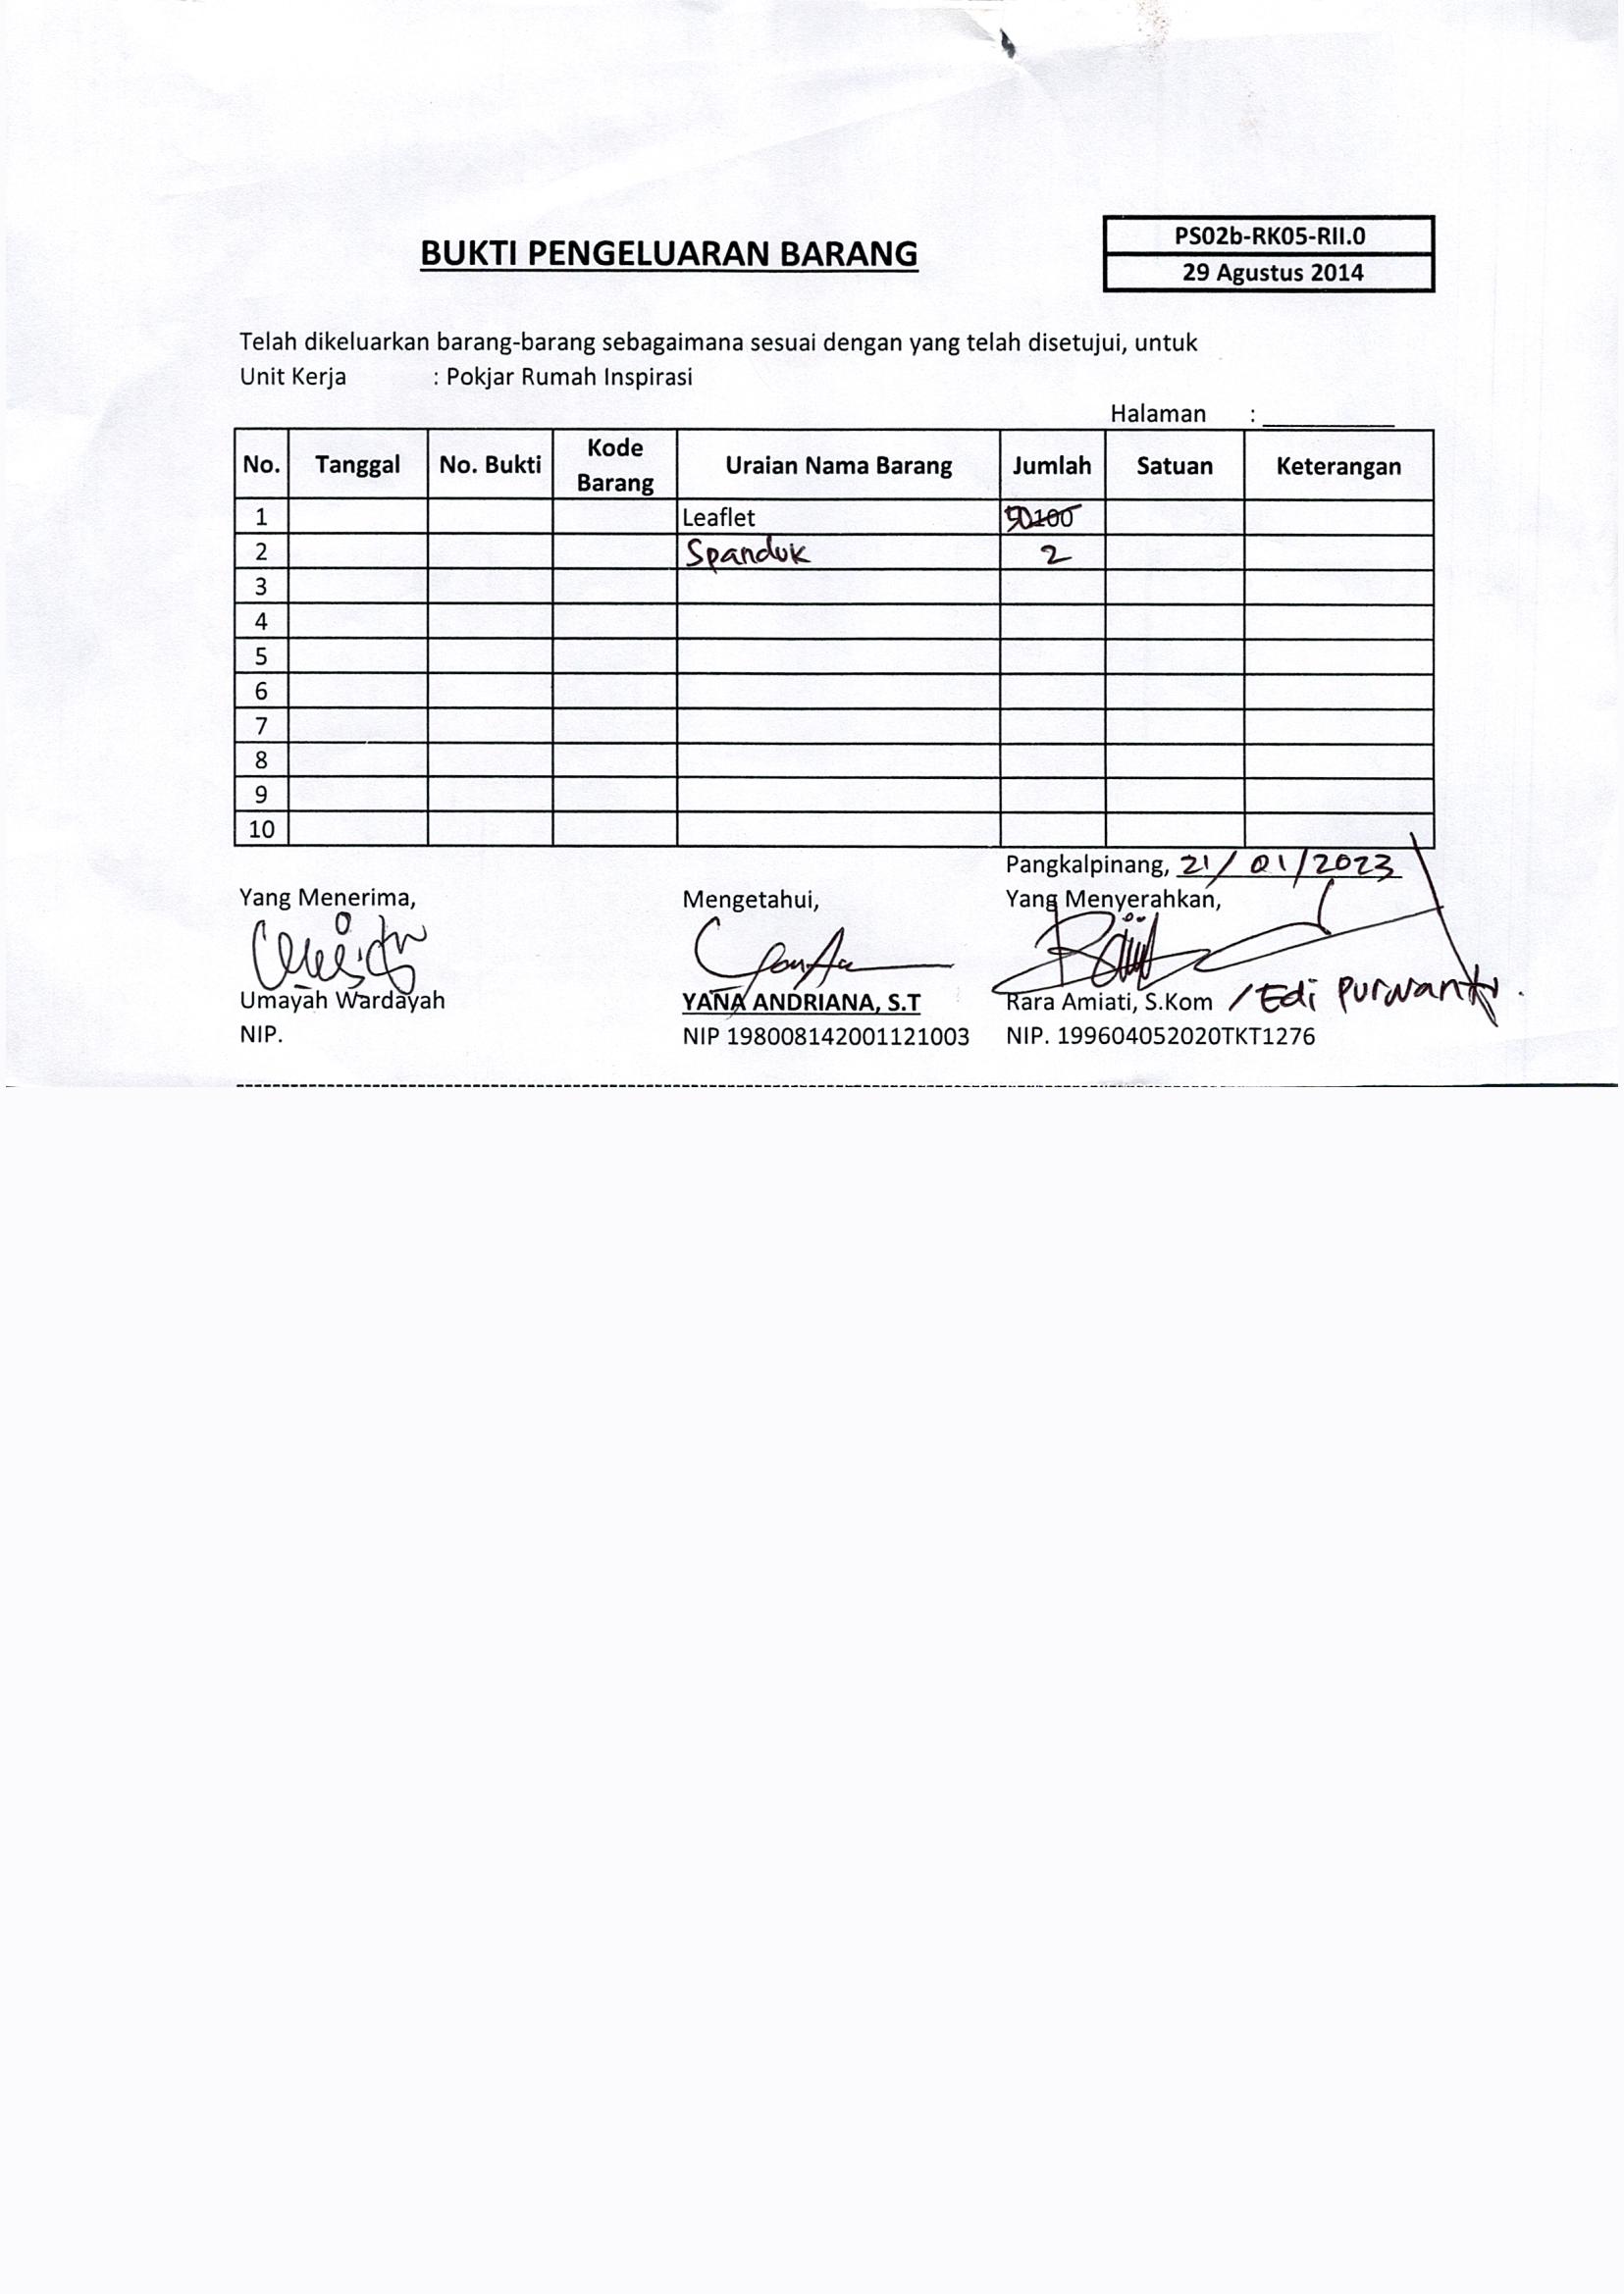 BUKTI PENGELUARAN BARANG
PS02b-RK05-RII.0
29 Agustus 2014
Telah dikeluarkan barang-barang sebagaimana sesuai dengan yang telah disetujui, untuk
Unit Kerja : Pokjar Rumah Inspirasi
Halaman : __________
No. Tanggal No. Bukti Kode Barang Uraian Nama Barang Jumlah Satuan Keterangan
1 Leaflet 50 100
2 Spanduk 2
3
4
5
6
7
8
9
10
Pangkalpinang, 21/01/2023
Yang Menerima, Mengetahui, Yang Menyerahkan,
Umayah Wardayah YANA ANDRIANA, S.T Rara Amiati, S.Kom /Edi Purwanto.
NIP. NIP 198008142001121003 NIP. 199604052020TKT1276